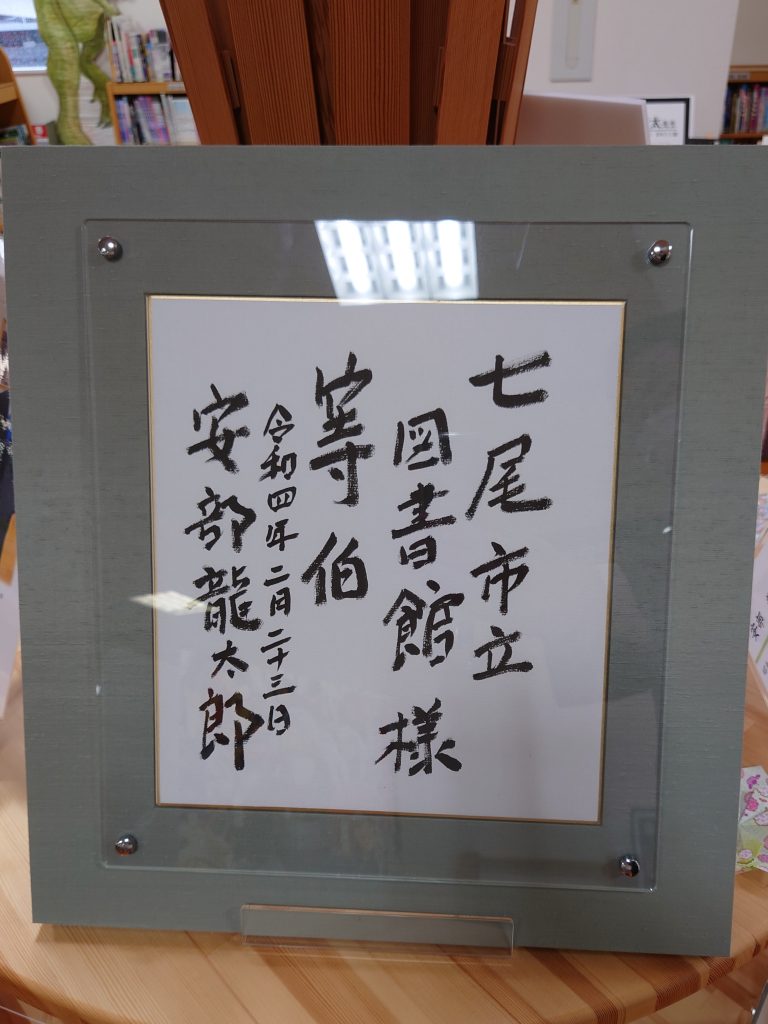 七尾市立
図書館様
等伯
令和四年二月二十三日
安部龍太郎